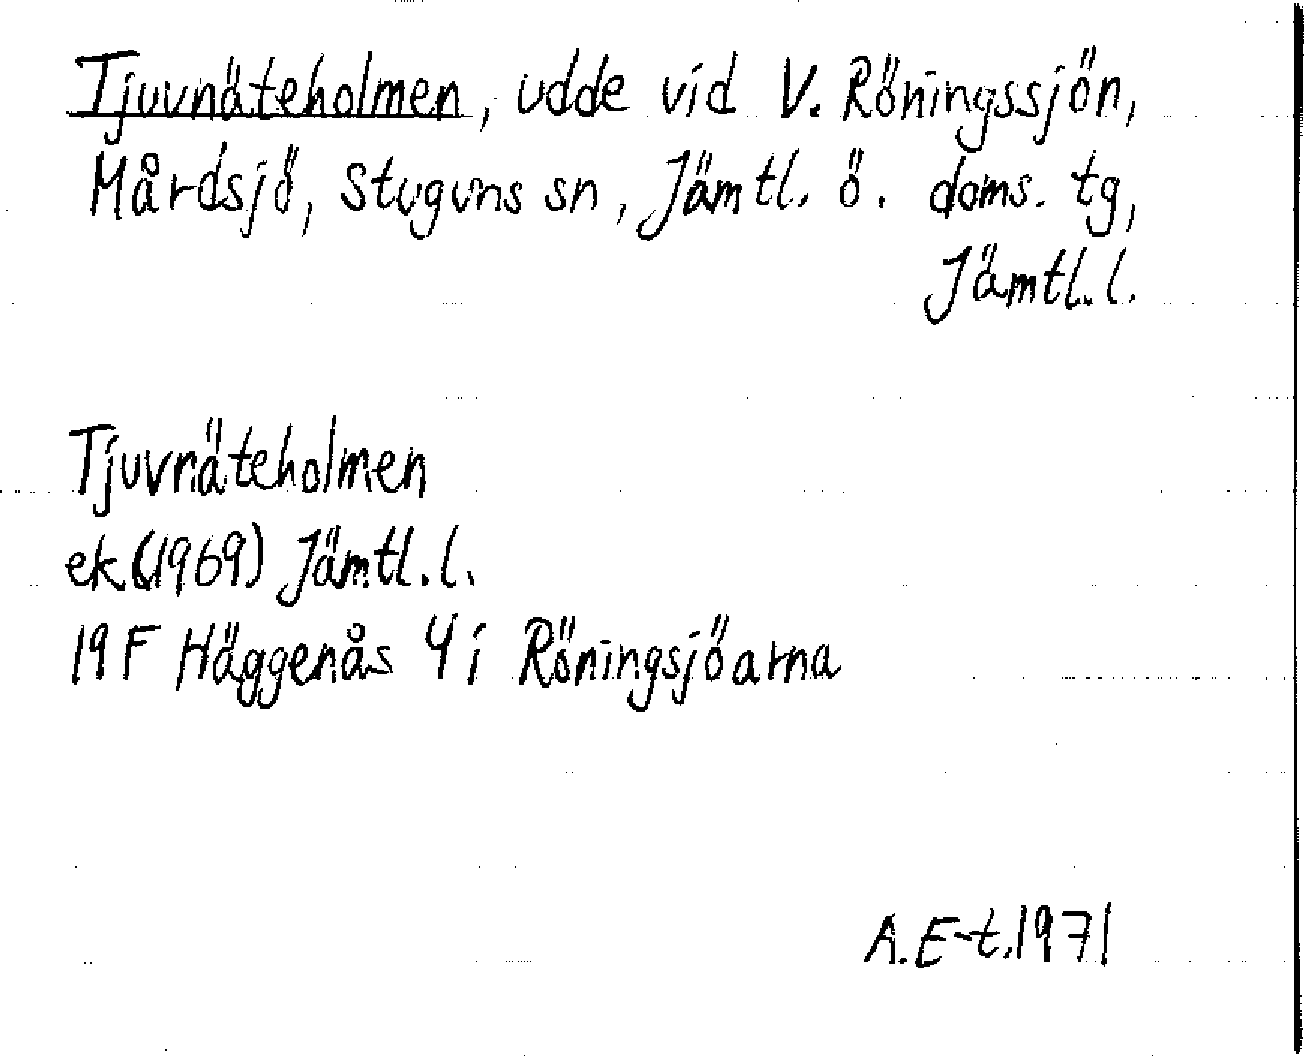 Tjuvnäteholmen, udde vid V. Röningssjön,
Mårdsjö, Stuguns sn, Jämtl. ö. doms. tg,
Jämtl. l.
Tjuvnäteholmen
ek (1969) Jämtl. l.
19 F Häggenås 4 i Röningsjöarna
A. E-t. 1971